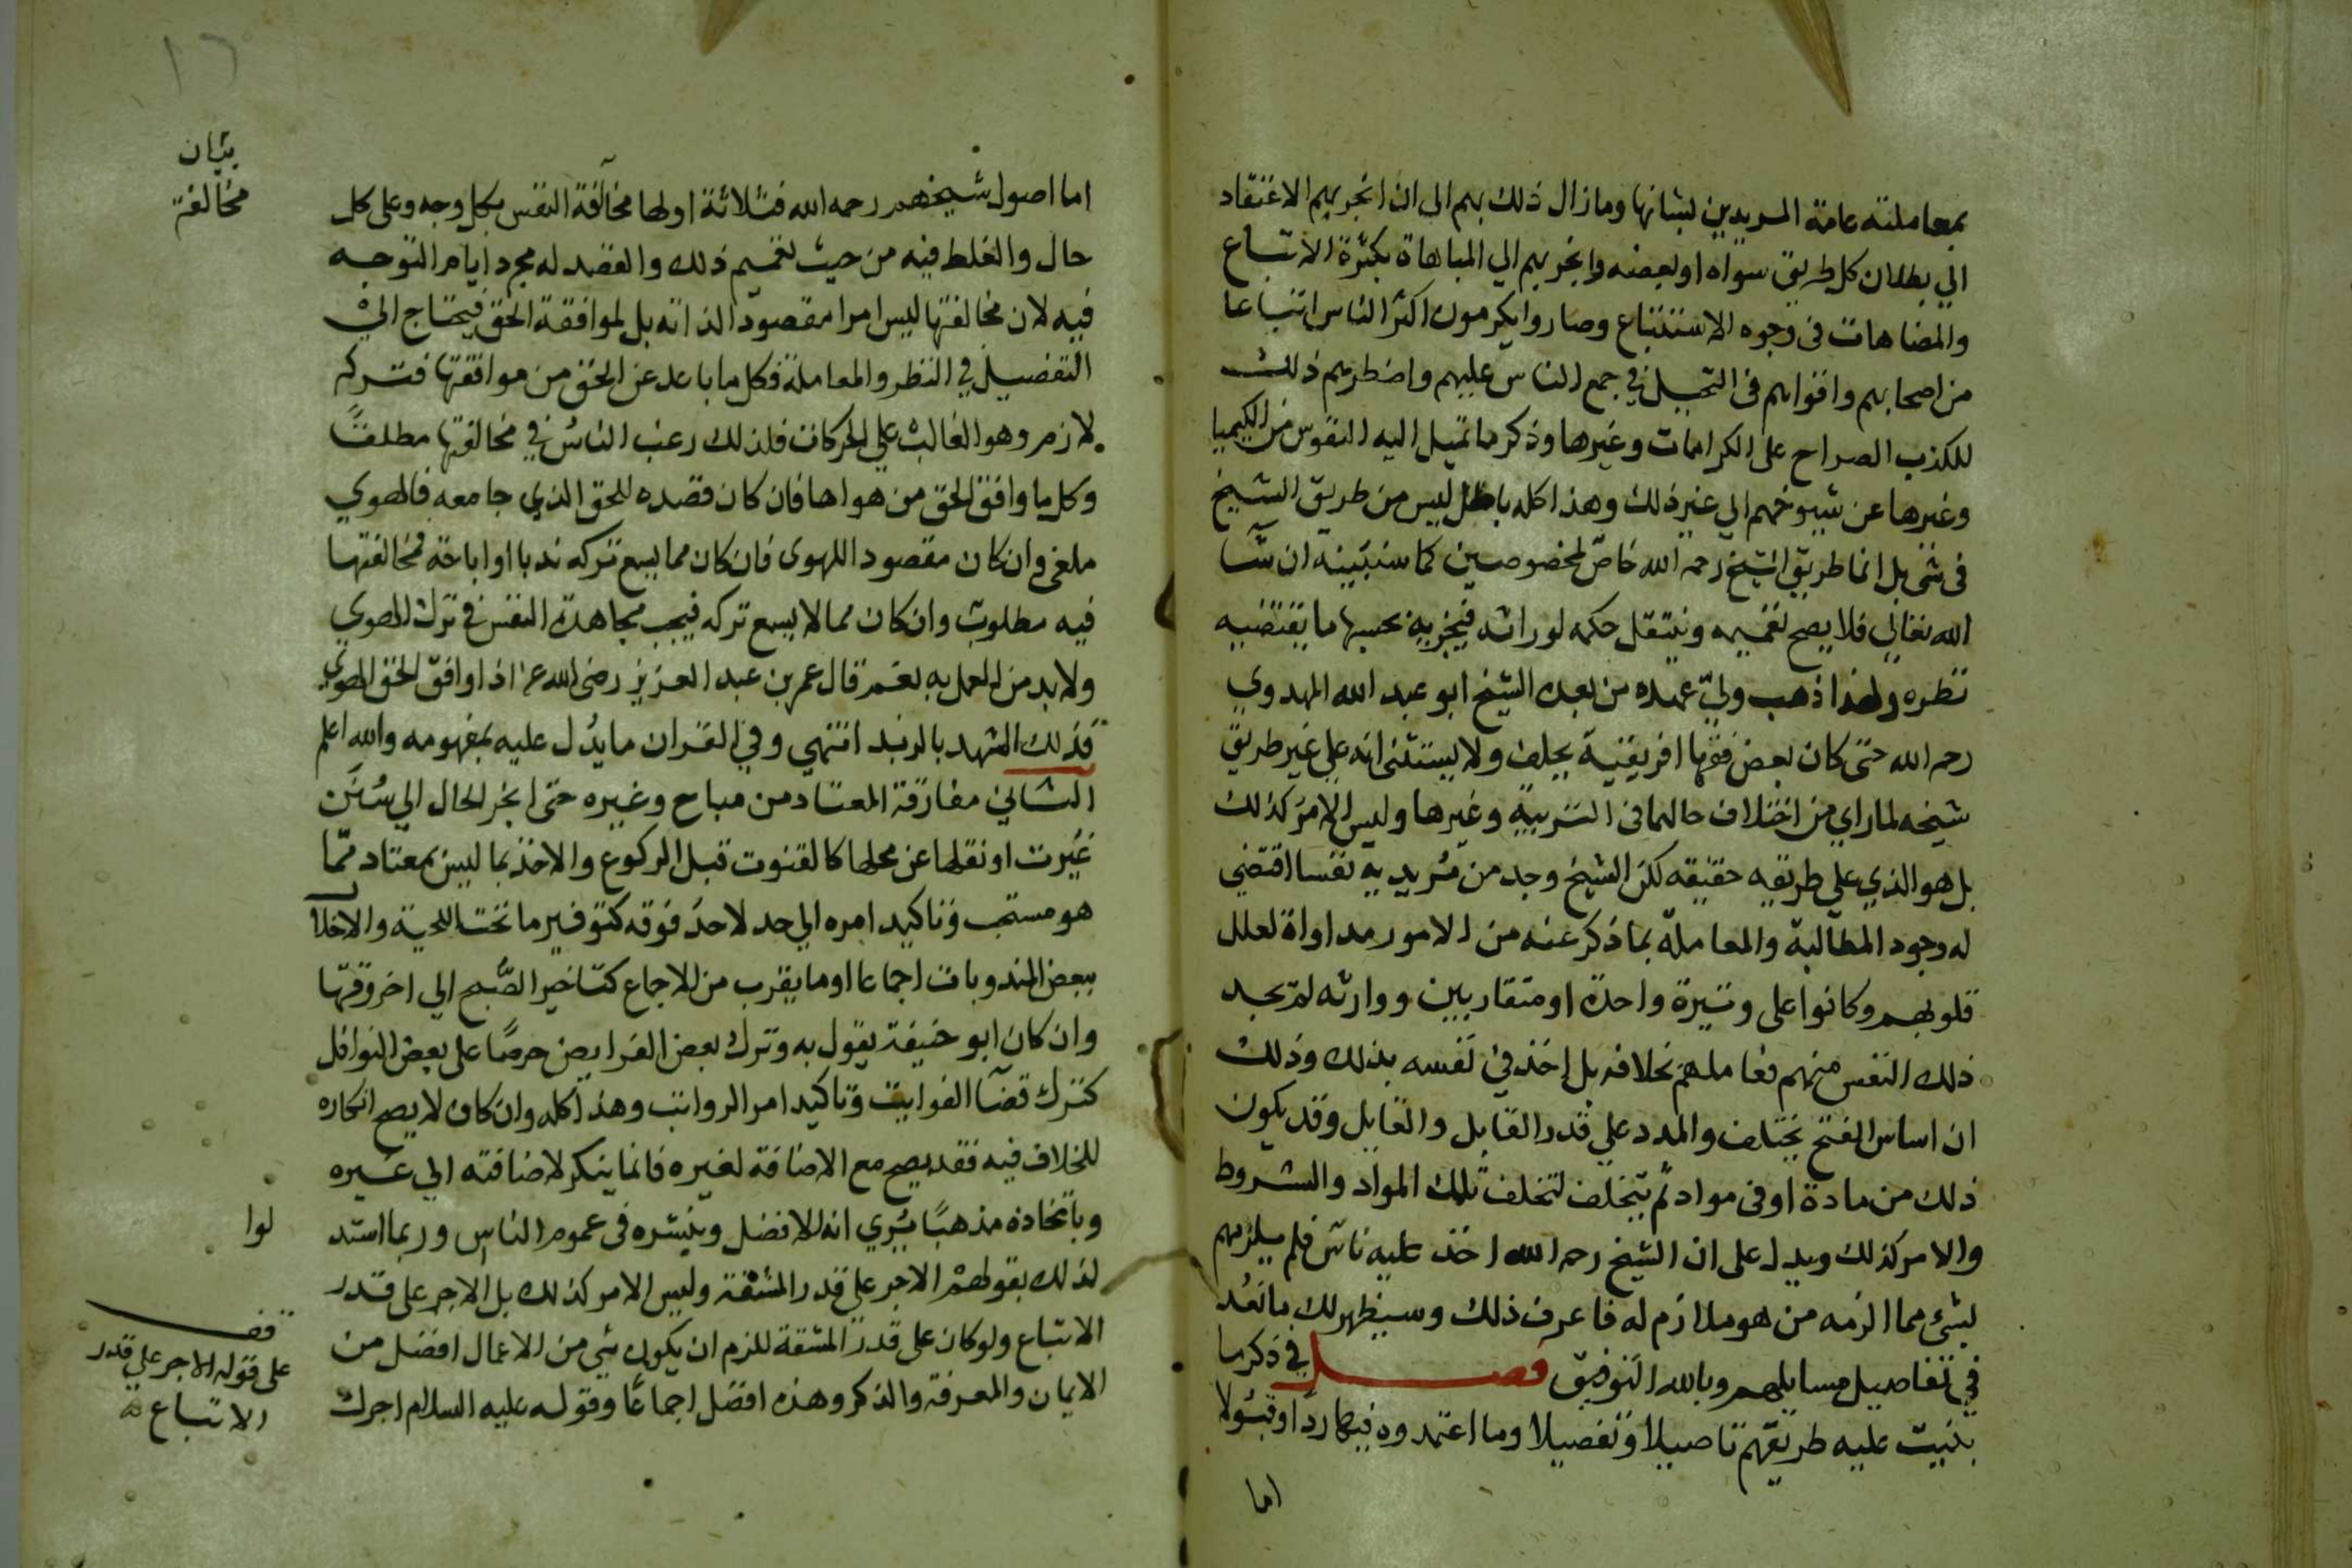 بمعاملته عامة المريدين لبثانها وما زال ذلك بهم الى ان انجر بهم الاعتقاد
الي بطلان كل طريق سواه او بعضه وانجر بهم الي المباهاة بكثرة الاتباع
والمضاهات فى وجوه الاستتباع وصاروا يكرمون اكثر الناس اتباعا
من اصحابهم وافواهم فى التحيل في جمع الناس عليهم واضطرهم ذلك
للكذب الصراح على الكرامات وغيرها وذكر ما تميل اليه النفوس من الكيميا
وغيرها عن شيوخهم الي غير ذلك وهذا كله باطل ليس من طريق الشيخ
فى شئ بل انما طريق الشيخ رحمه الله خاص لمخصوصين كما سنبينه ان شآ
الله تعالي فلا يصح تعميمه وينتقل حكمه لوراثه فيجز به بحسبها ما يقتضيه
نظره ولهذا ذهب ولي عهده من بعده الشيخ ابو عبد الله المهدوي
رحمه الله حتى كان بعض فقها افريقية يحلف ولا يستثنى انه علي غير طريق
شيخه لما راي من اختلاف حالهما فى التربية وغيرها وليس الامر كذلك
بل هو الذي علي طريقه حقيقه لكن الشيخ وجد من مُريديه نفسا اقتضي
له وجود المطالبة والمعاملة بما ذكر عنه من الامور مداواة لعلل
قلوبهم وكانوا على وتيرة واحدة او متقاربين ووارثه لم يجد
ذلك النفس منهم فعاملهم بخلافه بل اخذ في نفسه بذلك وذلك
ان اساس الفتح يختلف والمدد علي قدر القابل والقابل وقد يكون
ذلك من مادة او فى مواد ثم يتخلف لتخلف تلك المواد والشروط
والامر كذلك ويدل على ان الشيخ رحمه الله اخذ عليه ناس فلم يلزمهم
لشئ مما الزمه من هو ملازم له فاعرف ذلك وسيظهر لك ما نعُد
في تفاصيل مسايلهم وبالله التوفيق فصل في ذكر ما
بنيت عليه طريقتهم تاصيلا وتفصيلا وما اعتمدوه فيها ردا وقبولا
اما
١٦
بيان
مخالفة
اما اصول شيخهم رحمه الله فثلاثة اولها مخالفة النفس بكل وجه وعلى كل
حال والغلط فيه من حيث تعميم ذلك والقصد له مجرد ايام التوجه
فيه لان مخالفتها ليس امرا مقصودا لذاته بل لموافقة الحق فيحتاج الي
التفضيل في النظر والمعاملة فكل ما باعد عن الحق من موافقتها فتركه
لازم وهو الغالب علي الحركات فلذلك رغب الناس في مخالفتها مطلقا
وكل ما وافق الحق من هواها فان كان قصده للحق الذي جامعه فالهوي
ملغى وان كان مقصود اللهوى فان كان مما يسع تركه ندبا او اباحة فمخالفتها
فيه مطلوب وان كان مما لا يسع تركه فيجب مجاهدة النفس في ترك الهوي
ولا بد من العمل به نعم قال عمر بن عبد العزيز رضى الله عنه اذا وافق الحق الهوي
فذلك الشهد بالزبد انتهي وفي القران ما يدُل عليه بمفهومه والله اعلم
الثاني مفارقة المعتاد من مباح وغيره حتى انجر الحال الي سُنَن
غيّرت او نقلها عن محلها كالقنوت قبل الركوع والاخذ بما ليس بمعتاد ممّا
هو مستحب وتاكيد امره الي حد لا حد فوقه كتوفير ما تحت اللحية والاخلال
ببعض المندوبات اجماعا او ما يقرب من الاجماع كتاخير الصُبح الي اخر وقتها
وان كان ابو حنيفة يقول به وترك بعض الفرايض حرصًا على بعض النوافل
كترك قضآ الفوايت وتاكيد امر الرواتب وهذا كله وان كان لا يصح انكاره
للخلاف فيه فقد يصح مع الاضافة لغيره فانما ينكر لاضافته الي غيره
وباتخاذه مذهبًا يُري انه الافضل وينشره فى عموم الناس وربما استد
لوا
لذلك بقولهم الاجر علي قدر المشقة وليس الامر كذلك بل الاجر على قدر
الاتباع ولو كان على قدر المشقة للزم ان يكون شي من الاعمال افضل من
الايمان والمعرفة والذكر وهذه افضل اجماعًا وقوله عليه السلام اجرك
قف
على قوله الاجر علي قدر
الاتباع